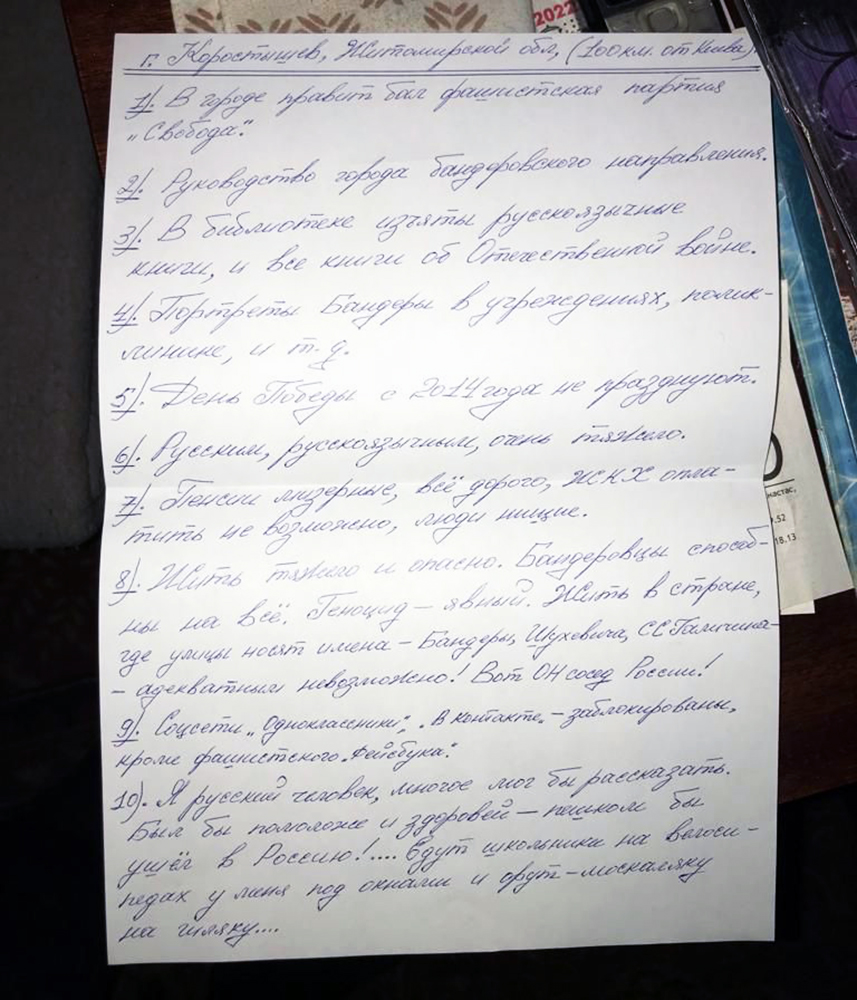 2022
г. Коростышев, Житомирской обл, (100 км. от Киева).
1). В городе правит бал фашистская партия
„Свобода".
2). Руководство города бандеровского направления.
3). В библиотеке изъяты русскоязычные
книги, и все книги об Отечественной войне.
4). Портреты Бандеры в учреждениях, полик-
линике, и т.д.
5). День Победы с 2014 года не празднуют.
6). Русским, русскоязычным, очень тяжело.
7). Пенсии мизерные, всё дорого, ЖКХ опла-
тить не возможно, люди нищие.
8). Жить тяжело и опасно. Бандеровцы способ-
ны на всё. Геноцид – явный. Жить в стране,
где улицы носят имена – Бандеры, Шухевича, СС Галичина-
– адекватным невозможно! Вот ОН сосед России!
9). Соцсети „Одноклассники", „В контакте" – заблокированы,
кроме фашистского „Фейсбука".
10). Я русский человек, многое мог бы рассказать.
Был бы помоложе и здоровей – пешком бы
ушёл в Россию!.... Едут школьники на велоси-
педах у меня под окнами и орут – москаляку
на гиляку....
настас,
9.52
18.13